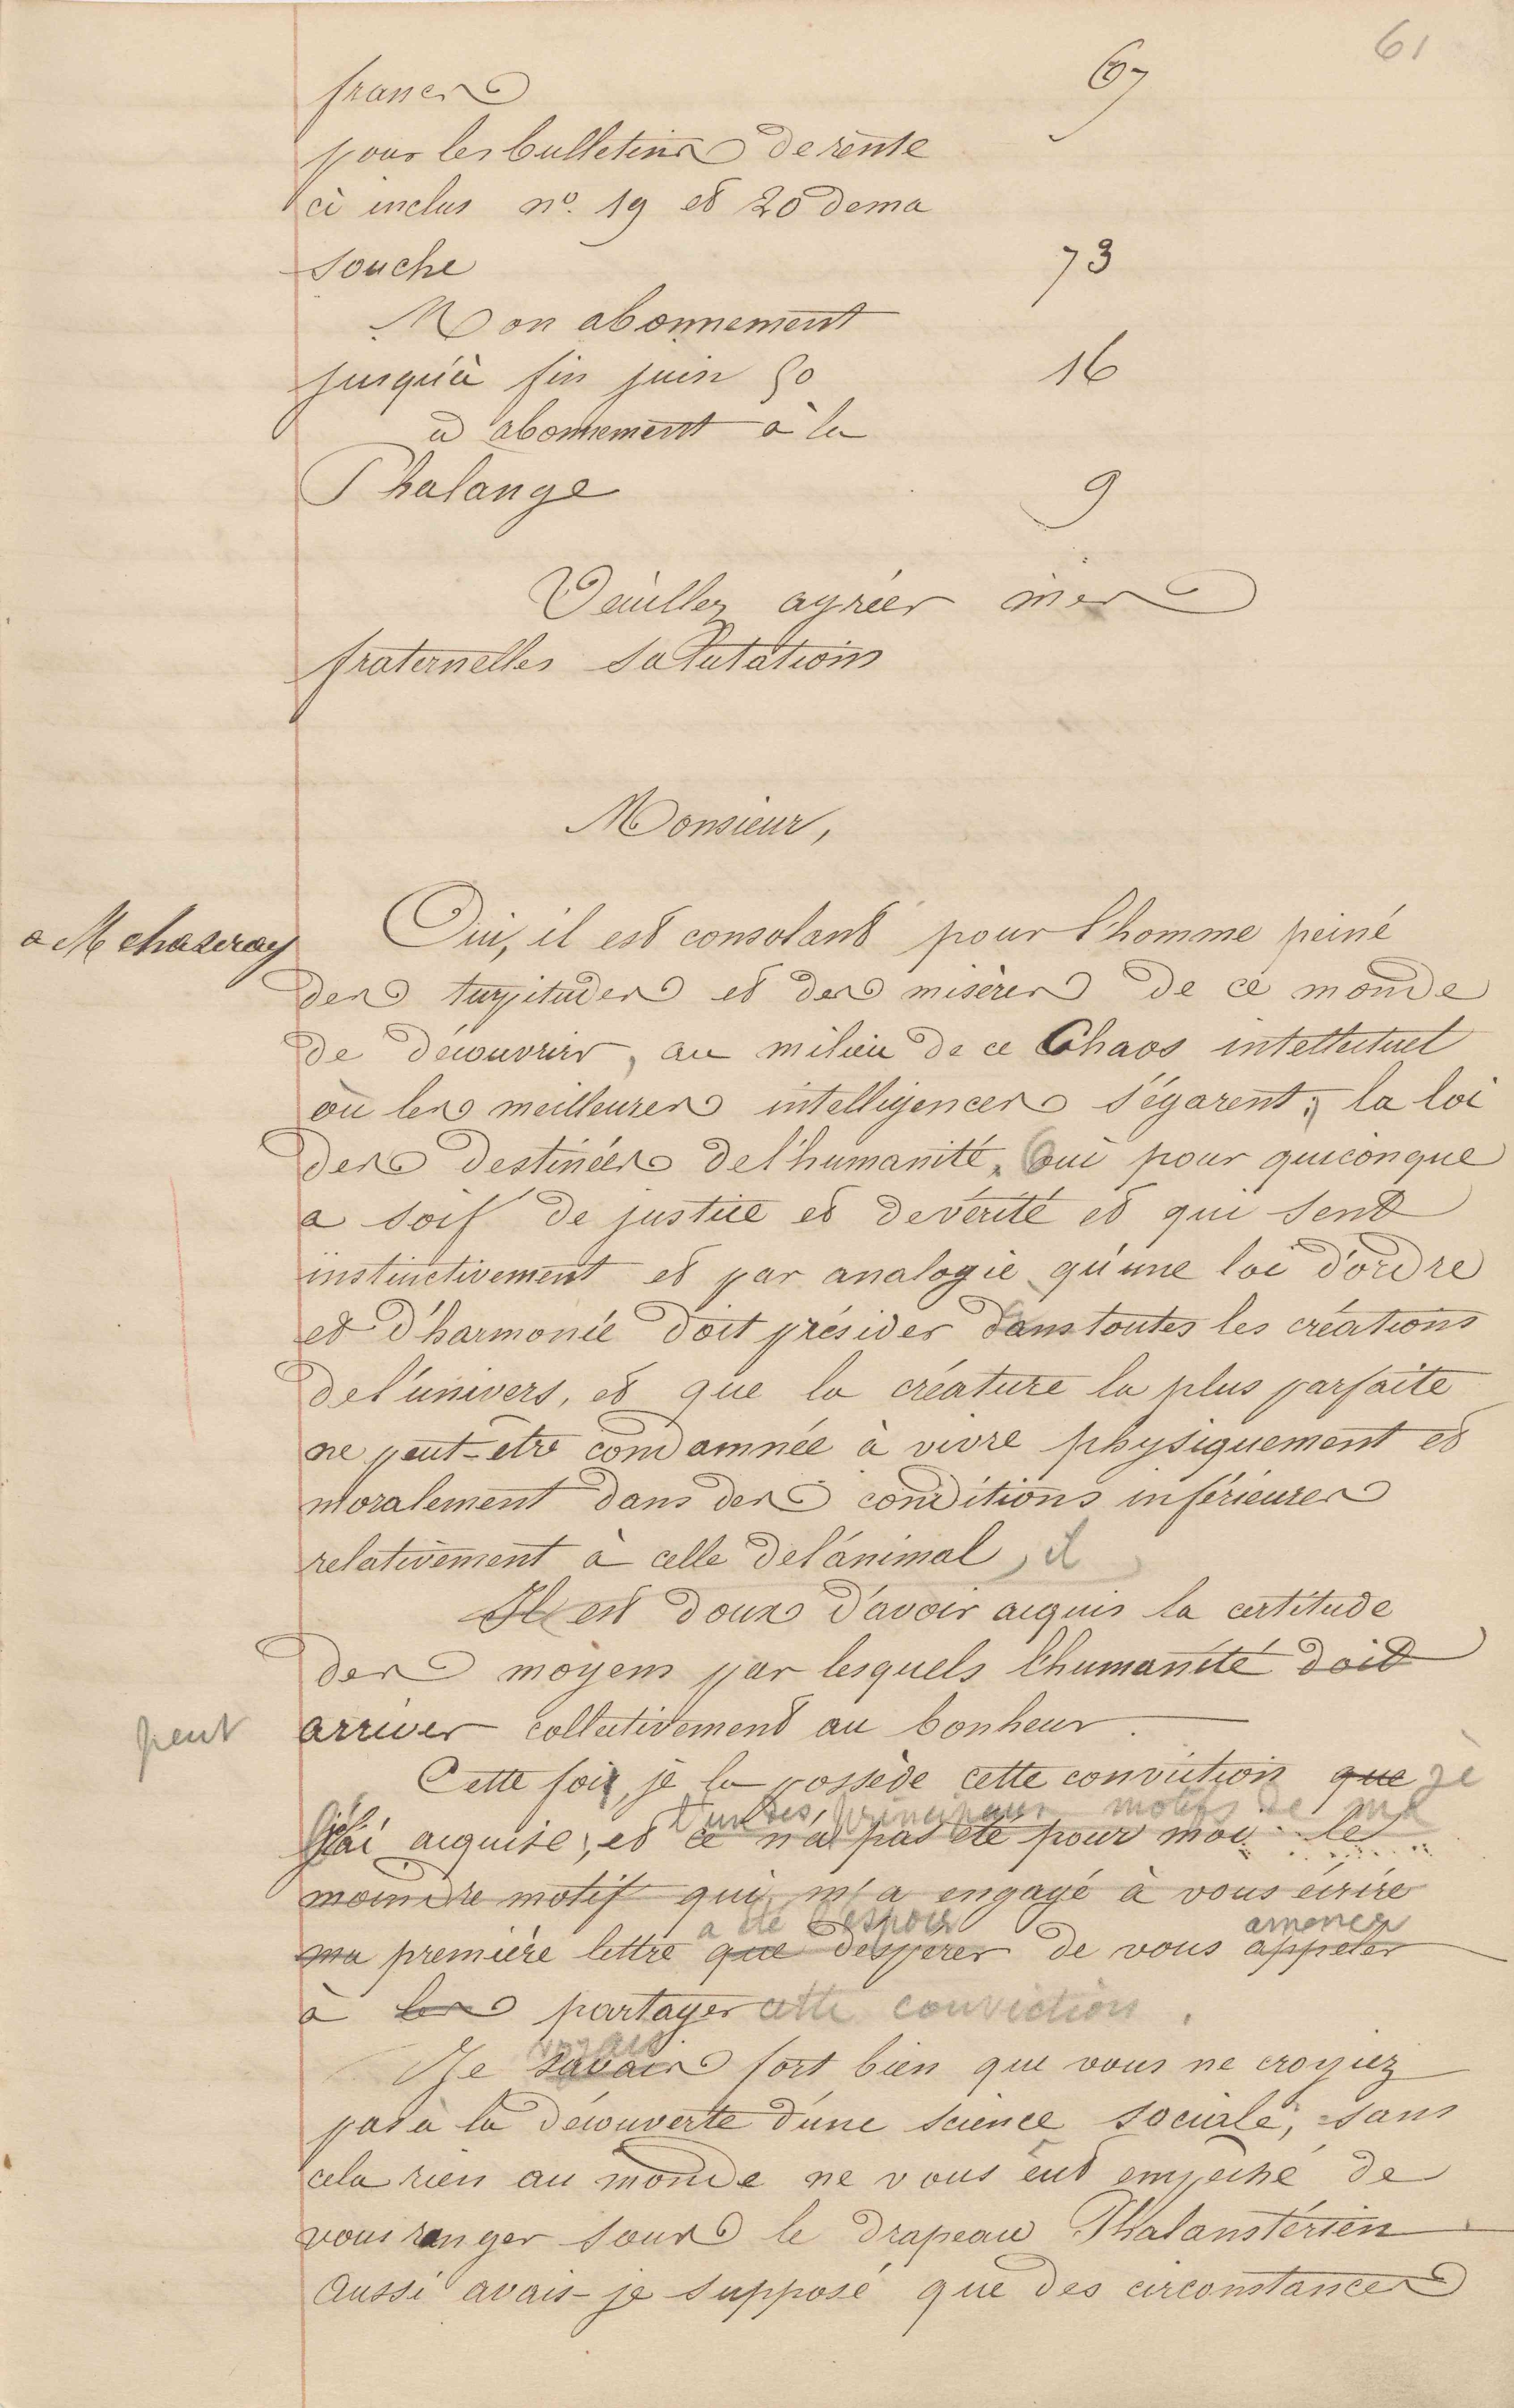 61
francs 67
pour les bulletins de rente
ci inclus nº. 19 et 20 de ma
souche 73
Mon abonnement
jusqu'à fin juin 50 16
d abonnement à la
Phalange 9
Veuillez agréer mes
fraternelles salutations
Monsieur,
a M chazeray
Oui, il est consolant pour l'homme peiné
des turpitudes et des misères de ce monde
de découvrir, au milieu de ce Chaos intellectuel
où les meilleures intelligences s'égarent; la loi
des destinées de l'humanité, oui pour quiconque
a soif de justice et de vérité et qui sent
instinctivement et par analogie qu'une loi d'ordre
et d'harmonie doit présider dans toutes les créations
de l'univers, et que la créature la plus parfaite
ne peut-etre condamnée à vivre physiquement et
moralement dans des conditions inférieures
relativement à celle de l'animal, il
Il est doux d'avoir acquis la certitude
des moyens par lesquels l'humanité doit
peut
arriver collectivement au bonheur.
Cette foi, je la possède cette conviction que je
l'un des principaux motifs de ma
j'ai acquise; et ce n'a pas été pour moi le
moindre motif qui m'a engagé à vous écrire
a été l'espoir amener
ma première lettre que d'espérer de vous appeler
à les partager cette conviction.
voyais
Je savais fort bien que vous ne croyiez
pas à la découverte d'une science sociale; sans
cela rien au monde ne vous eut empeché de
vous ranger sous le drapeau Phalanstérien
Aussi avais-je supposé que des circonstances